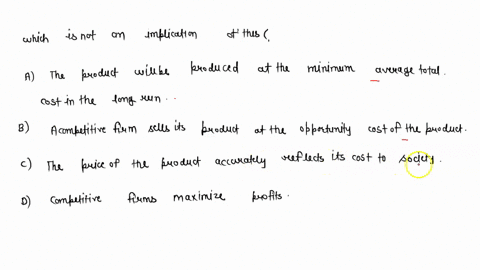 which is not an implication of this (
A) The product will be produced at the minimum average total
cost in the long run.
B) A competitive firm sells its product at the opportunity cost of the product.
C) The price of the product accurately reflects its cost to society.
D) Competitive firms maximize profits.